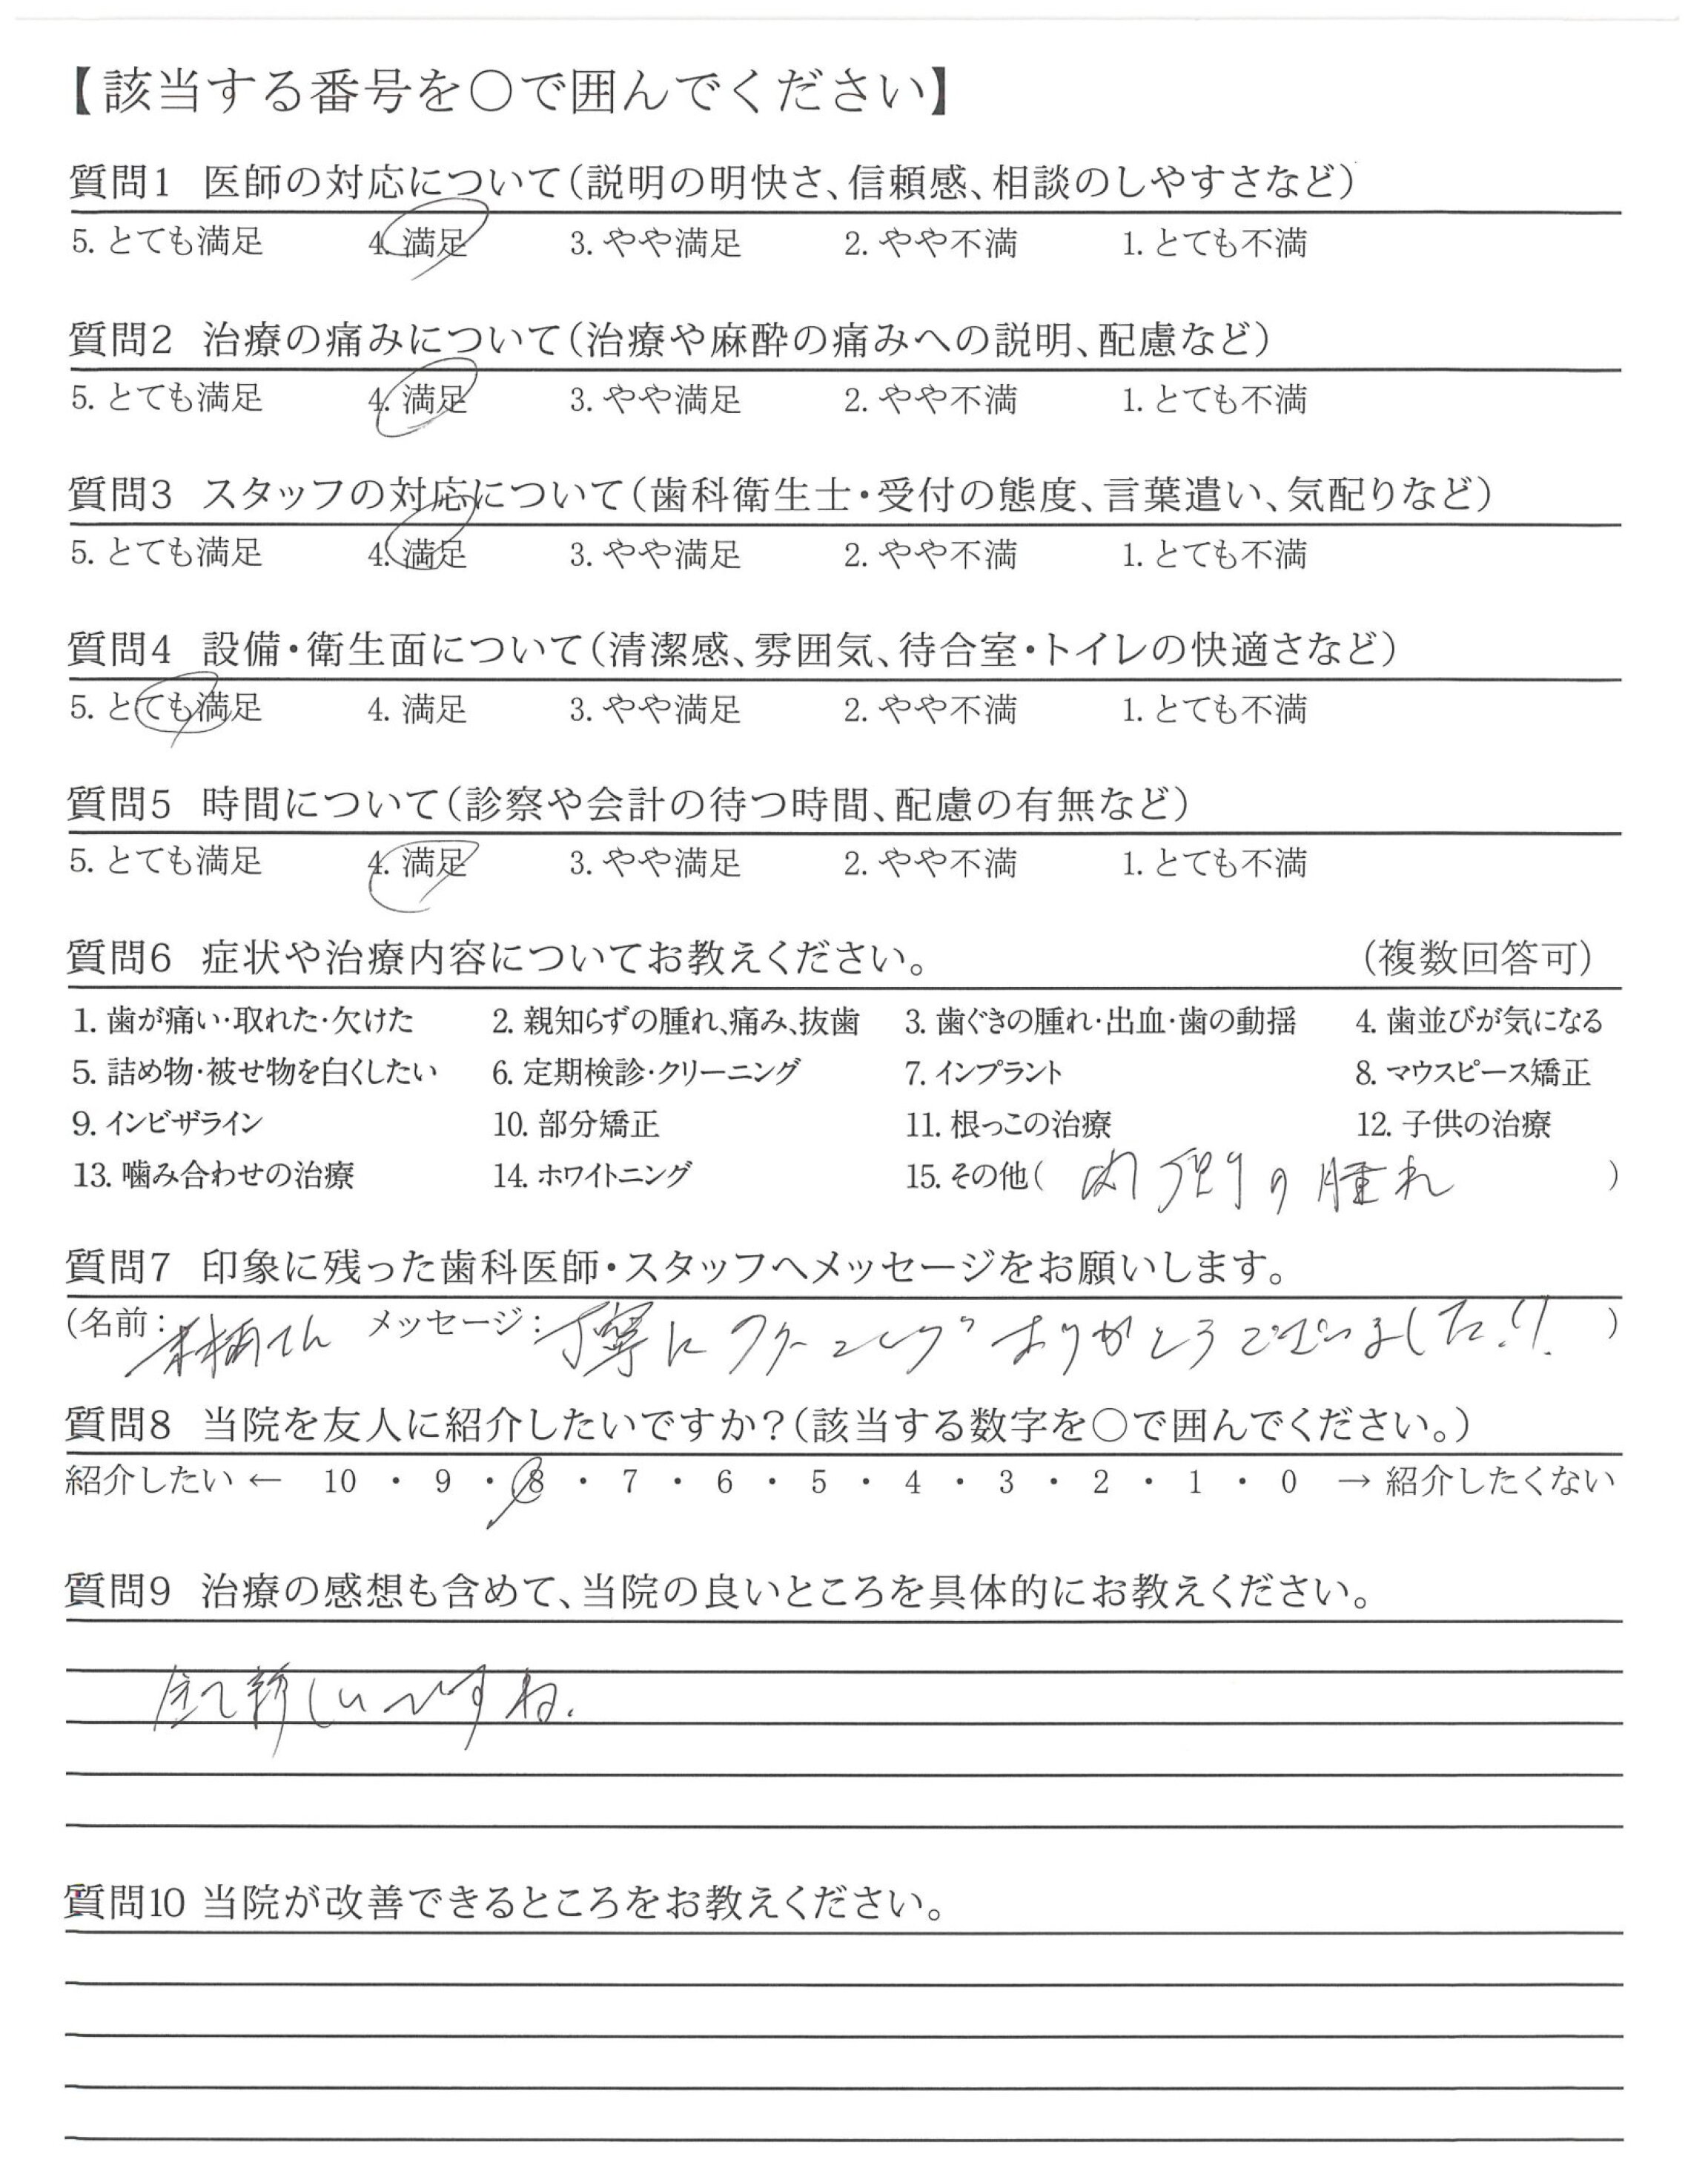 【該当する番号を〇で囲んでください】
質問1 医師の対応について(説明の明快さ、信頼感、相談のしやすさなど)
5. とても満足 4. 満足 3. やや満足 2. やや不満 1. とても不満
質問2 治療の痛みについて(治療や麻酔の痛みへの説明、配慮など)
5. とても満足 4. 満足 3. やや満足 2. やや不満 1. とても不満
質問3 スタッフの対応について(歯科衛生士・受付の態度、言葉遣い、気配りなど)
5. とても満足 4. 満足 3. やや満足 2. やや不満 1. とても不満
質問4 設備・衛生面について(清潔感、雰囲気、待合室・トイレの快適さなど)
5. とても満足 4. 満足 3. やや満足 2. やや不満 1. とても不満
質問5 時間について(診察や会計の待つ時間、配慮の有無など)
5. とても満足 4. 満足 3. やや満足 2. やや不満 1. とても不満
質問6 症状や治療内容についてお教えください。 (複数回答可)
1. 歯が痛い・取れた・欠けた 2. 親知らずの腫れ、痛み、抜歯 3. 歯ぐきの腫れ・出血・歯の動揺 4. 歯並びが気になる
5. 詰め物・被せ物を白くしたい 6. 定期検診・クリーニング 7. インプラント 8. マウスピース矯正
9. インビザライン 10. 部分矯正 11. 根っこの治療 12. 子供の治療
13. 噛み合わせの治療 14. ホワイトニング 15. その他( 内側の腫れ )
質問7 印象に残った歯科医師・スタッフへメッセージをお願いします。
(名前: メッセージ: 丁寧にクリーニング ありがとうございました!! )
質問8 当院を友人に紹介したいですか?(該当する数字を〇で囲んでください。)
紹介したい ← 10 ・ 9 ・ 8 ・ 7 ・ 6 ・ 5 ・ 4 ・ 3 ・ 2 ・ 1 ・ 0 → 紹介したくない
質問9 治療の感想も含めて、当院の良いところを具体的にお教えください。
全て新しいですね.
質問10 当院が改善できるところをお教えください。